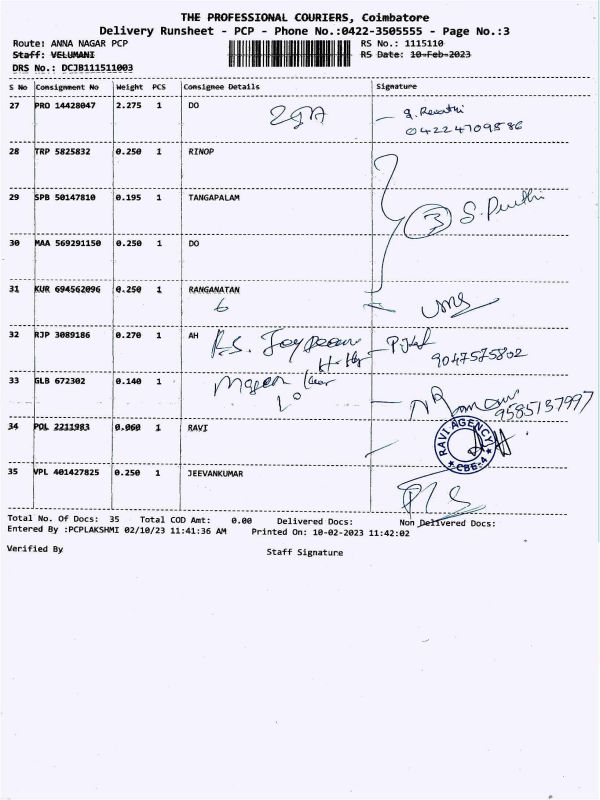 THE PROFESSIONAL COURIERS, Coimbatore
Delivery Runsheet - PCP - Phone No.:0422-3505555 - Page No.:3
Route: ANNA NAGAR PCP RS No.: 1115110
Staff: VELUMANI RS Date: 10-Feb-2023
DRS No.: DCJB111511003
S No Consignment No Weight PCS Consignee Details Signature
27 PRO 14428047 2.275 1 DO
04224709586
28 TRP 5825832 0.250 1 RINOP
29 SPB 50147810 0.195 1 TANGAPALAM
3
30 MAA 569291150 0.250 1 DO
31 KUR 694562096 0.250 1 RANGANATAN
6
32 RJP 3089186 0.270 1 AH
9047575802
33 GLB 672302 0.140 1
9585137997
34 POL 2211983 0.060 1 RAVI
RAVI AGENCY
CBE-4
35 VPL 401427825 0.250 1 JEEVANKUMAR
Total No. Of Docs: 35 Total COD Amt: 0.00 Delivered Docs: Non Delivered Docs:
Entered By :PCPLAKSHMI 02/10/23 11:41:36 AM Printed On: 10-02-2023 11:42:02
Verified By Staff Signature